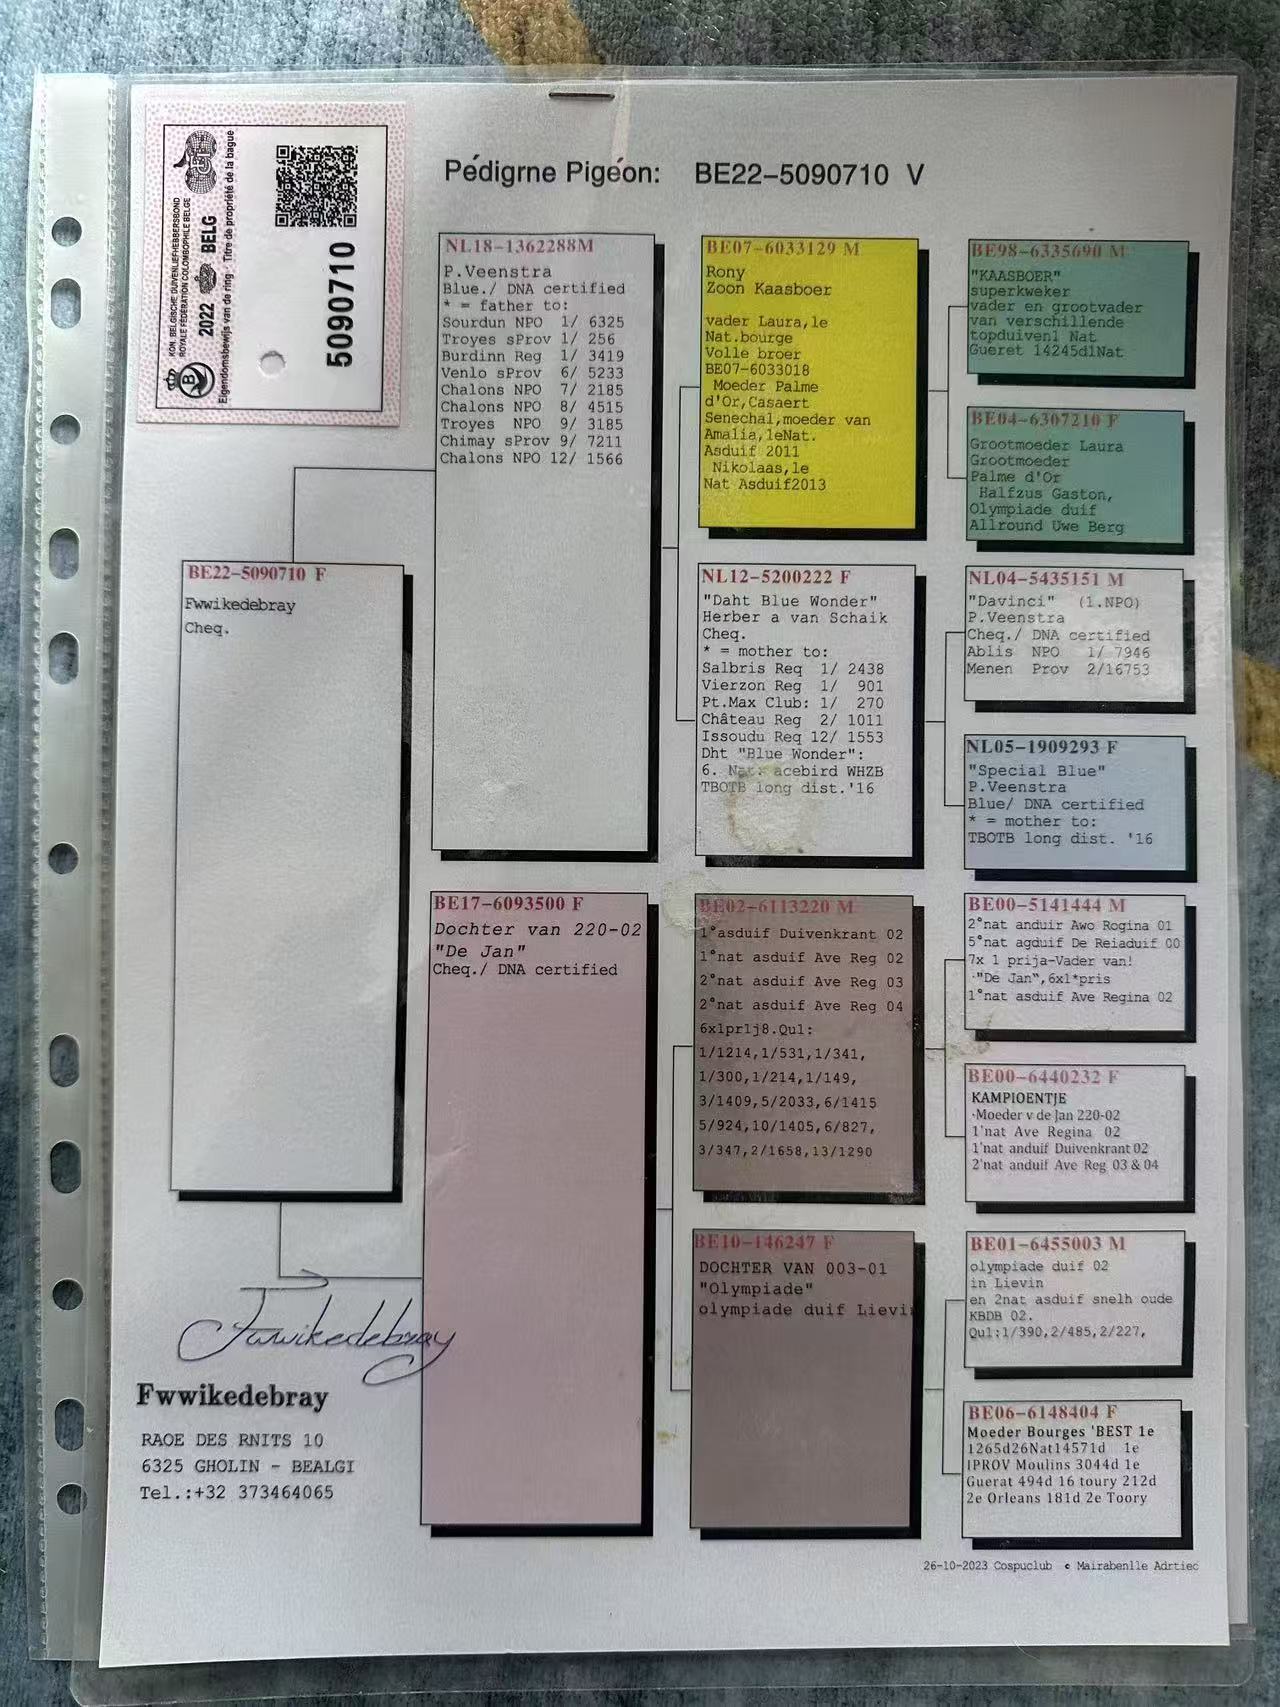 KON. BELGISCHE DUIVENLIEFHEBBERSBOND
ROYALE FÉDÉRATION COLOMBOPHILE BELGE
2022 BELG
Eigendomsbewijs van de ring - Titre de propriété de la bague
5090710
B
Pédigrne Pigéon: BE22-5090710 V
BE22-5090710 F
Fwwikedebray
Cheq.
NL18-1362288M
P.Veenstra
Blue./ DNA certified
* = father to:
Sourdun NPO 1/ 6325
Troyes sProv 1/ 256
Burdinn Reg 1/ 3419
Venlo sProv 6/ 5233
Chalons NPO 7/ 2185
Chalons NPO 8/ 4515
Troyes NPO 9/ 3185
Chimay sProv 9/ 7211
Chalons NPO 12/ 1566
BE17-6093500 F
Dochter van 220-02
"De Jan"
Cheq./ DNA certified
BE07-6033129 M
Rony
Zoon Kaasboer
vader Laura,1e
Nat.bourge
Volle broer
BE07-6033018
Moeder Palme
d'Or,Casaert
Senechal,moeder van
Amalia,1eNat.
Asduif 2011
Nikolaas,1e
Nat Asduif2013
NL12-5200222 F
"Daht Blue Wonder"
Herber a van Schaik
Cheq.
* = mother to:
Salbris Req 1/ 2438
Vierzon Reg 1/ 901
Pt.Max Club: 1/ 270
Château Reg 2/ 1011
Issoudu Req 12/ 1553
Dht "Blue Wonder":
6. Nat. acebird WHZB
TBOTB long dist.'16
BE02-6113220 M
1°asduif Duivenkrant 02
1°nat asduif Ave Reg 02
2°nat asduif Ave Reg 03
2°nat asduif Ave Reg 04
6x1pr1j8.Qu1:
1/1214,1/531,1/341,
1/300,1/214,1/149,
3/1409,5/2033,6/1415
5/924,10/1405,6/827,
3/347,2/1658,13/1290
BE10-146247 F
DOCHTER VAN 003-01
"Olympiade"
olympiade duif Lievin
BE98-6335690 M
"KAASBOER"
superkweker
vader en grootvader
van verschillende
topduiven1 Nat
Gueret 14245d1Nat
BE04-6307210 F
Grootmoeder Laura
Grootmoeder
Palme d'Or
Halfzus Gaston,
Olympiade duif
Allround Uwe Berg
NL04-5435151 M
"Davinci" (1.NPO)
P.Veenstra
Cheq./ DNA certified
Ablis NPO 1/ 7946
Menen Prov 2/16753
NL05-1909293 F
"Special Blue"
P.Veenstra
Blue/ DNA certified
* = mother to:
TBOTB long dist. '16
BE00-5141444 M
2°nat anduir Awo Rogina 01
5°nat agduif De Reiaduif 00
7x 1 prija-Vader van!
·"De Jan",6x1*pris
1°nat asduif Ave Regina 02
BE00-6440232 F
KAMPIOENTJE
·Moeder v de Jan 220-02
1'nat Ave Regina 02
1'nat anduif Duivenkrant 02
2'nat anduif Ave Reg 03 & 04
BE01-6455003 M
olympiade duif 02
in Lievin
en 2nat asduif snelh oude
KBDB 02.
Qu1:1/390,2/485,2/227,
BE06-6148404 F
Moeder Bourges 'BEST 1e
1265d26Nat14571d 1e
IPROV Moulins 3044d 1e
Guerat 494d 16 toury 212d
2e Orleans 181d 2e Toory
Fwwikedebray
Fwwikedebray
RAOE DES RNITS 10
6325 GHOLIN - BEALGI
Tel.:+32 373464065
26-10-2023 Cospuclub © Mairabenlle Adrtiec